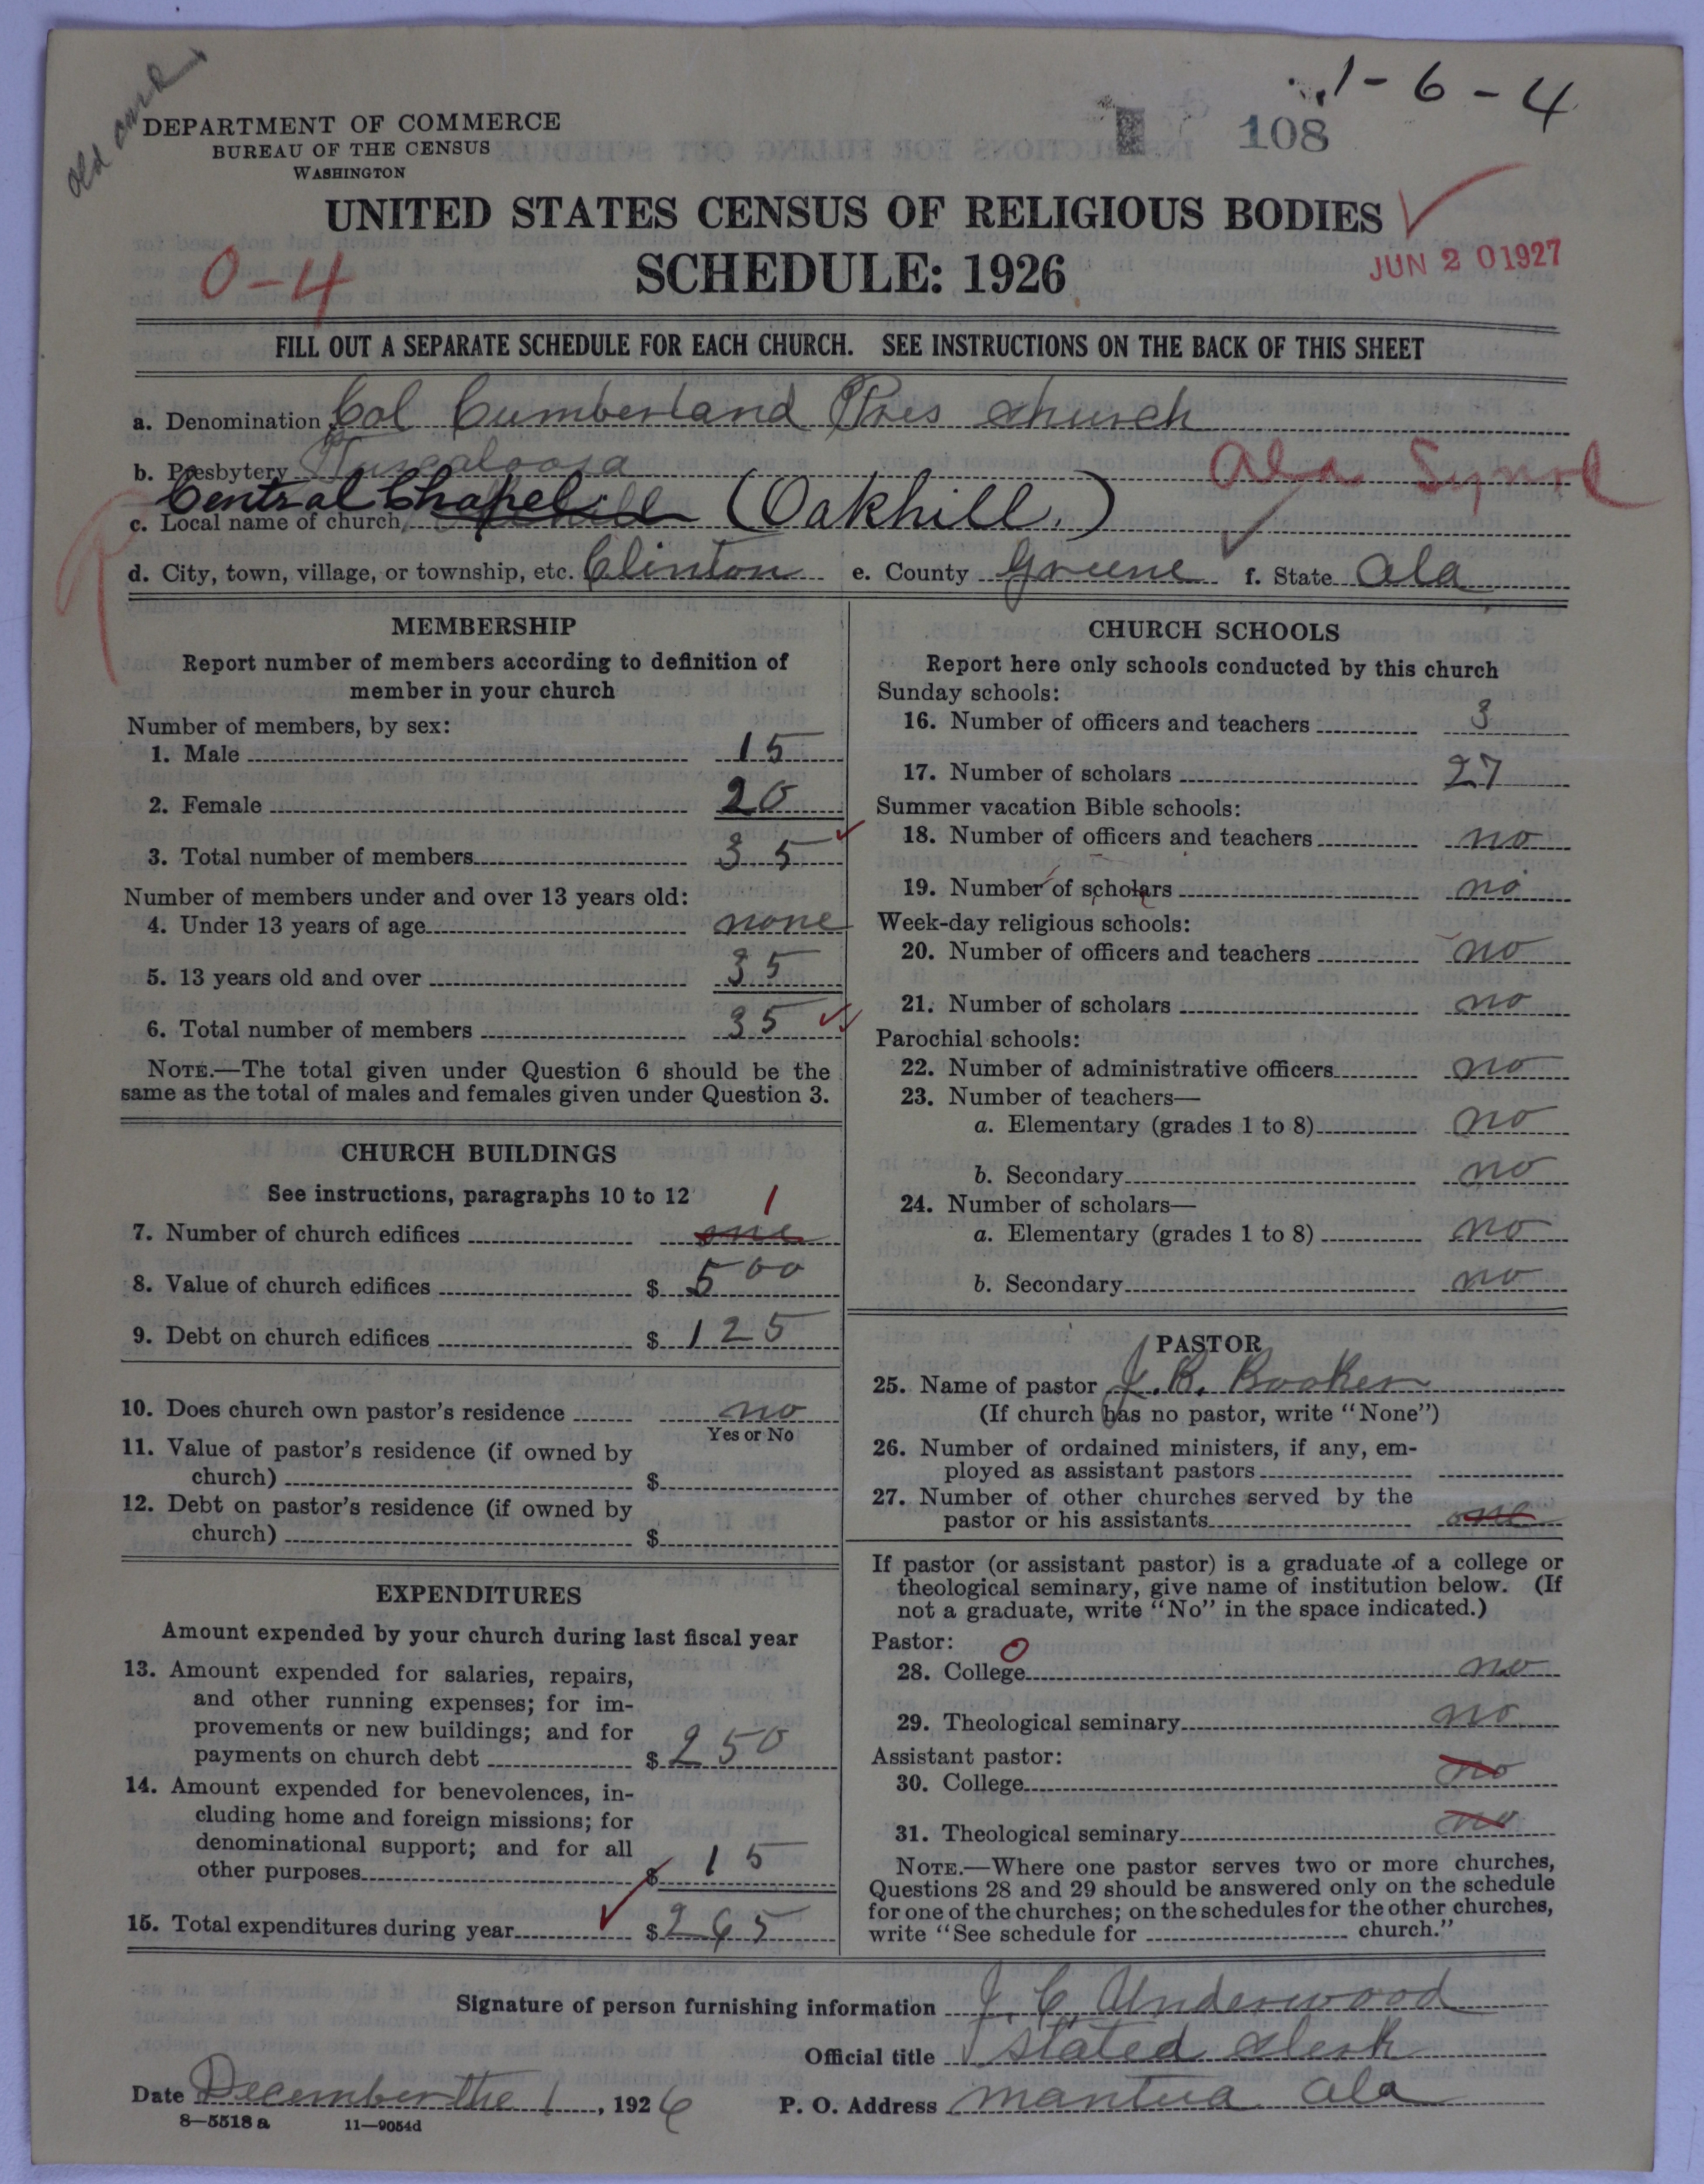 old card
1-6-4
108
DEPARTMENT OF COMMERCE
BUREAU OF THE CENSUS
WASHINGTON
UNITED STATES CENSUS OF RELIGIOUS BODIES
SCHEDULE: 1926
0-4
JUN 20 1927
FILL OUT A SEPARATE SCHEDULE FOR EACH CHURCH. SEE INSTRUCTIONS ON THE BACK OF THIS SHEET
a. Denomination Col Cumberland Pres church
b. Presbytery Tuscaloosa
Ala Synod
c. Local name of church, Central Chapel (Oakhill.)
d. City, town, village, or township, etc. Clinton e. County Greene f. State Ala
MEMBERSHIP
Report number of members according to definition of
member in your church
Number of members, by sex:
1. Male 15
2. Female 20
3. Total number of members 35
Number of members under and over 13 years old:
4. Under 13 years of age none
5. 13 years old and over 35
6. Total number of members 35
NOTE.—The total given under Question 6 should be the
same as the total of males and females given under Question 3.
CHURCH BUILDINGS
See instructions, paragraphs 10 to 12
1
7. Number of church edifices one
8. Value of church edifices $ 500
9. Debt on church edifices $ 125
10. Does church own pastor's residence no
Yes or No
11. Value of pastor's residence (if owned by
church) $
12. Debt on pastor's residence (if owned by
church) $
EXPENDITURES
Amount expended by your church during last fiscal year
13. Amount expended for salaries, repairs,
and other running expenses; for im-
provements or new buildings; and for
payments on church debt $ 250
14. Amount expended for benevolences, in-
cluding home and foreign missions; for
denominational support; and for all
other purposes $ 15
15. Total expenditures during year $ 265
CHURCH SCHOOLS
Report here only schools conducted by this church
Sunday schools:
16. Number of officers and teachers 3
17. Number of scholars 27
Summer vacation Bible schools:
18. Number of officers and teachers no
19. Number of scholars no
Week-day religious schools:
20. Number of officers and teachers no
21. Number of scholars no
Parochial schools:
22. Number of administrative officers no
23. Number of teachers—
a. Elementary (grades 1 to 8) no
b. Secondary no
24. Number of scholars—
a. Elementary (grades 1 to 8) no
b. Secondary no
PASTOR
25. Name of pastor J. B. Booker
(If church has no pastor, write "None")
26. Number of ordained ministers, if any, em-
ployed as assistant pastors
27. Number of other churches served by the
pastor or his assistants one
If pastor (or assistant pastor) is a graduate of a college or
theological seminary, give name of institution below. (If
not a graduate, write "No" in the space indicated.)
Pastor: 0
28. College no
29. Theological seminary no
Assistant pastor:
30. College no
31. Theological seminary no
NOTE.—Where one pastor serves two or more churches,
Questions 28 and 29 should be answered only on the schedule
for one of the churches; on the schedules for the other churches,
write "See schedule for church."
Signature of person furnishing information J. C. Underwood
Official title Stated Clerk
Date December the 1, 1926 P. O. Address Mantua Ala
8—5518 a 11—9054d